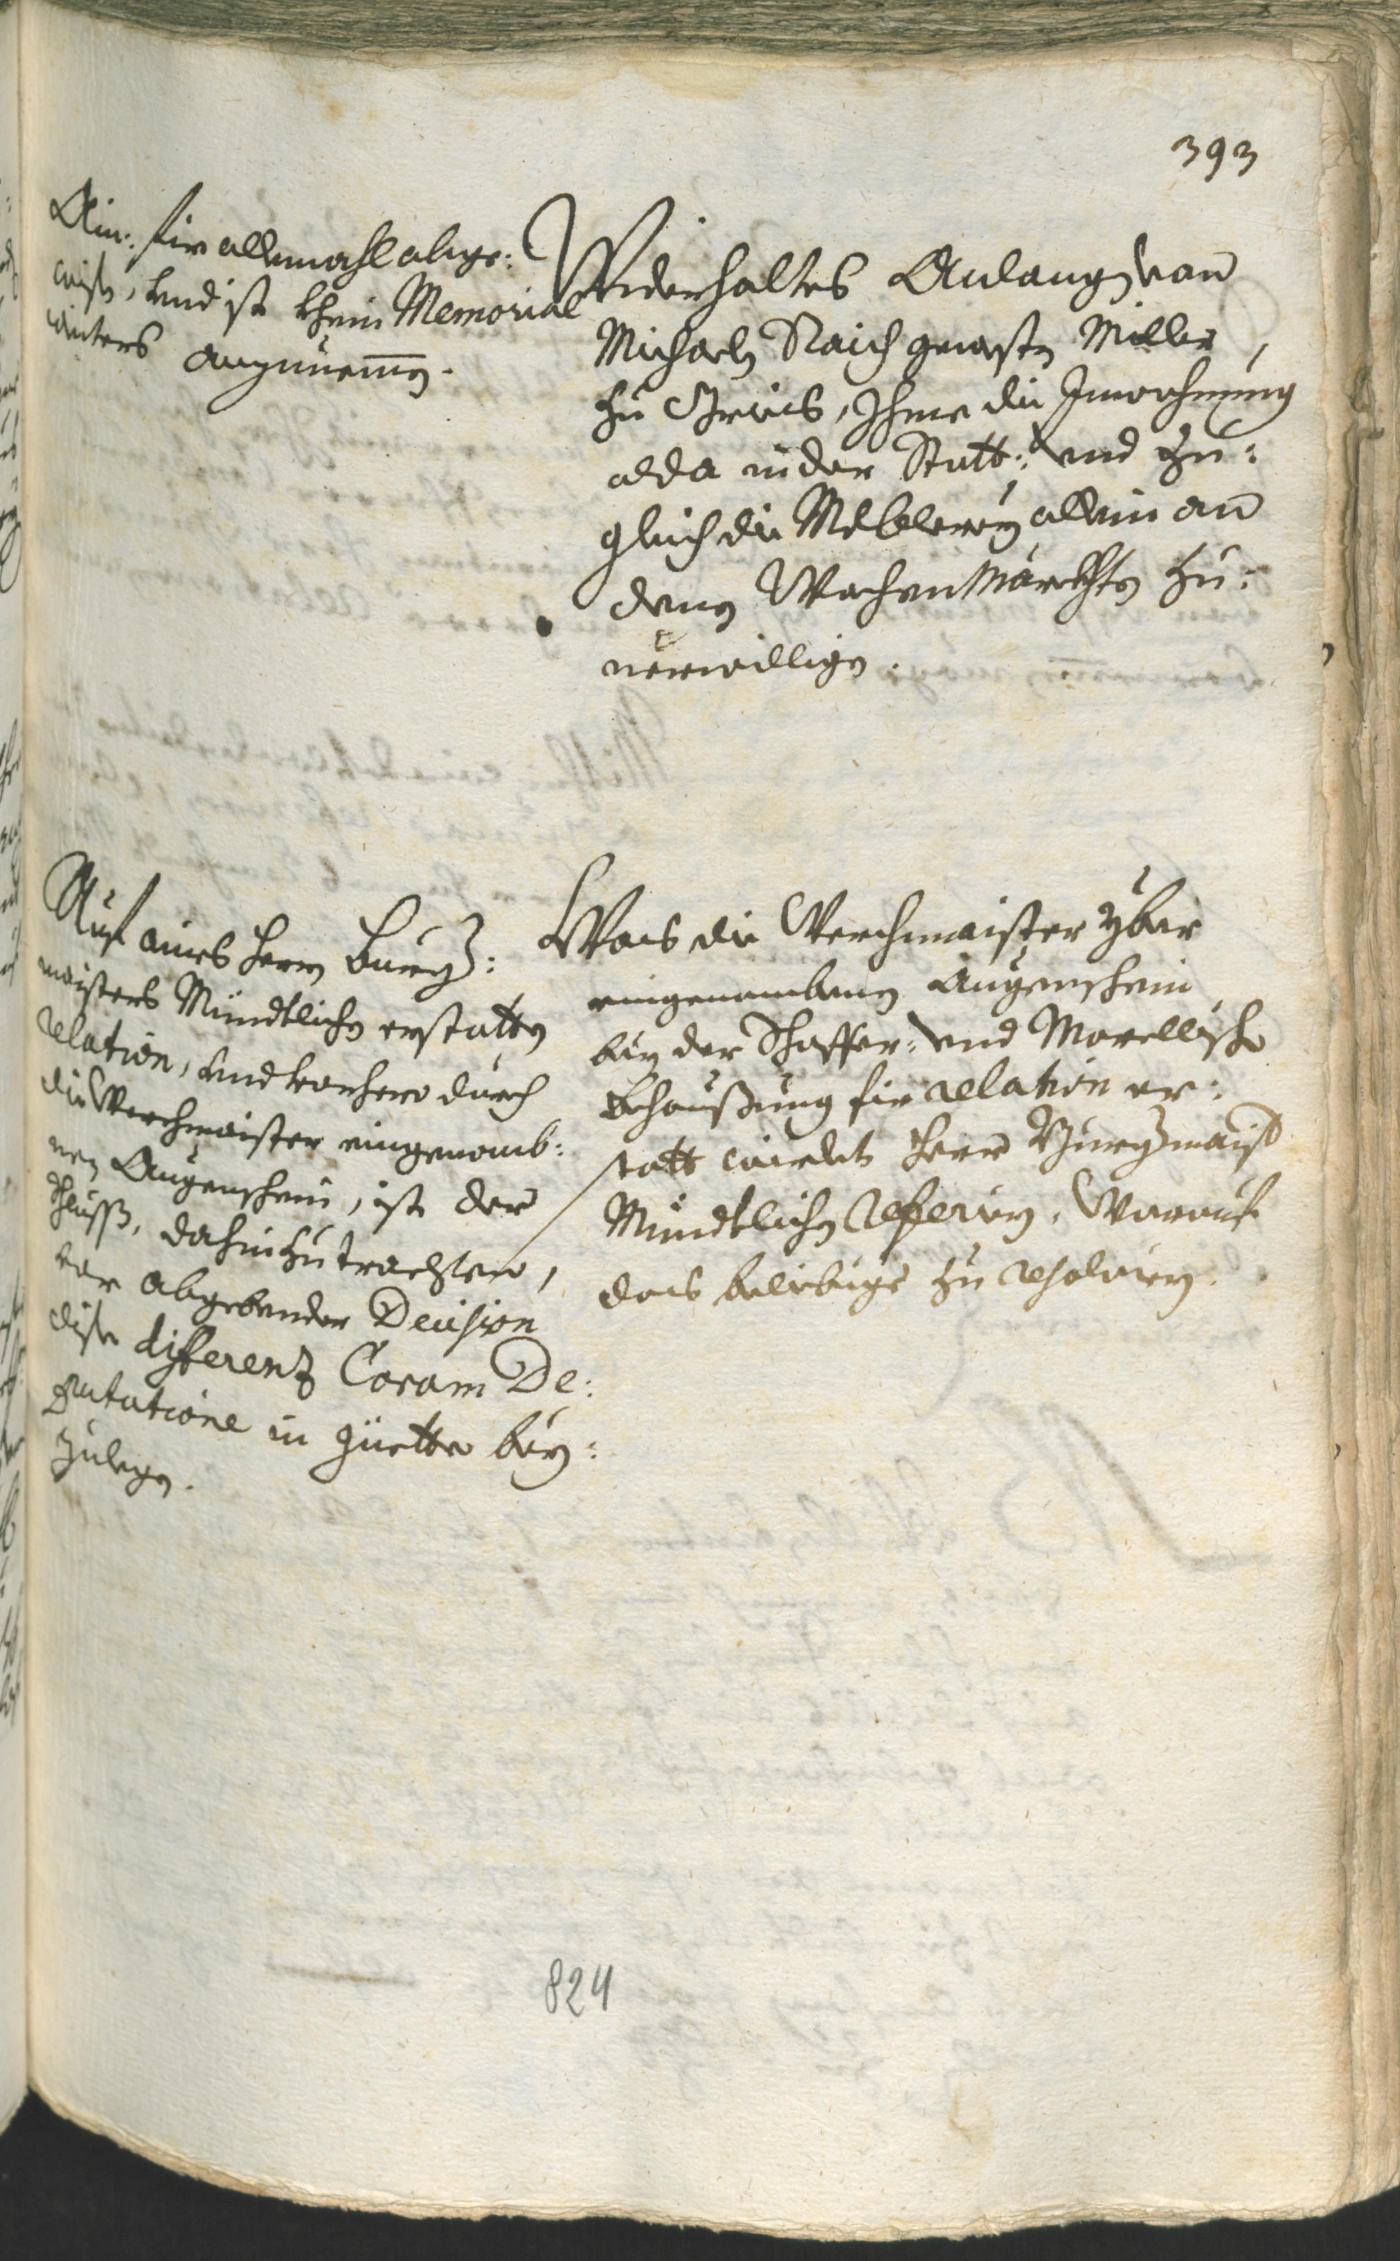 393
Ain: für allemahl abge:
wisen, und ist khein Memorial
weiters anzunemen.
Widerholtes Anlangen von
Michaeln Raich gewesten Miller
zu Gries, Ihme die Inwohnung
alda in der Statt: und zu:
gleich die Melbleren allein an
denen Wochenmärckhten zu:
verwilligen.
Auf aines Herrn Burger:
maisters Mündtlichen erstatten
relation, und vorhero durch
die Werchmaister eingenomb:
nen Augenschein, ist der
Schluss, dahin zu trachten,
vor abgebender Decision
dise differenz Coram De:
putatione in güette bey:
zulegen.
Was die Werchmaister yber
eingenombenen Augenschein
bey der Schaffer: und Morellischen
Behaußung für relation er:
statt, wirdet Herr Burgermaister
Mündtlichen Referiern, Worauf
das beliebige zu resolviern.
824